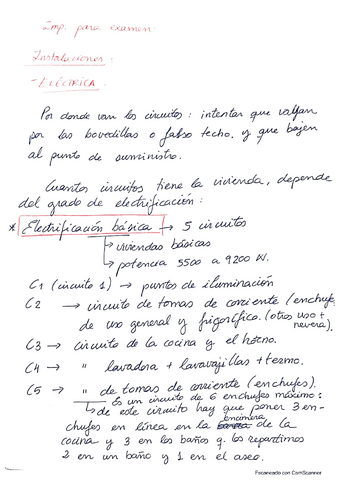 Imp. para examen:
Instalaciones:
- ELÉCTRICA.
Por donde van los circuitos: intentar que vallan
por las bovedillas o falso techo, y que bajen
al punto de suministro.
Cuantos circuitos tiene la vivienda, depende
del grado de electrificación:
* Electrificación básica → 5 circuitos
↳ viviendas básicas
↳ potencia 5500 a 9200 W.
C1 (circuito 1) → puntos de iluminación
C2 → circuito de tomas de corriente (enchufes
de uso general y frigorífico. (otros uso +
nevera).
C3 → circuito de la cocina y el horno.
C4 → " lavadora + lavavajillas + termo.
C5 → " de tomas de corriente (enchufes).
- Es un circuito de 6 enchufes máximo:
↳ de este circuito hay que poner 3 en-
encimera
chufes en línea en la de la
cocina y 3 en los baños q. los repartimos
2 en un baño y 1 en el aseo.
Escaneado con CamScanner